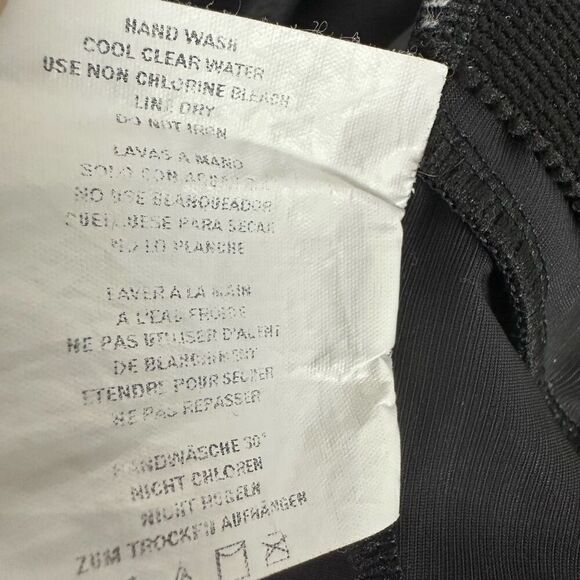 HAND WASH
COOL CLEAR WATER
USE NON CHLORINE BLEACH
LINE DRY
DO NOT IRON
LAVAS A MANO
SOLO CON
NO USE BLANQUEADOR
CUELGUESE PARA SECAR
NO LO PLANCHE
LAVER A LA MAIN
A L'EAU FROIDE
NE PAS UTILISER D'AGENT
DE BLANCHIMENT
ETENDRE POUR SECHER
NE PAS REPASSER
HANDWÄSCHE 30°
NICHT CHLOREN
NICHT
ZUM TROCKEN AUFHÄNGEN